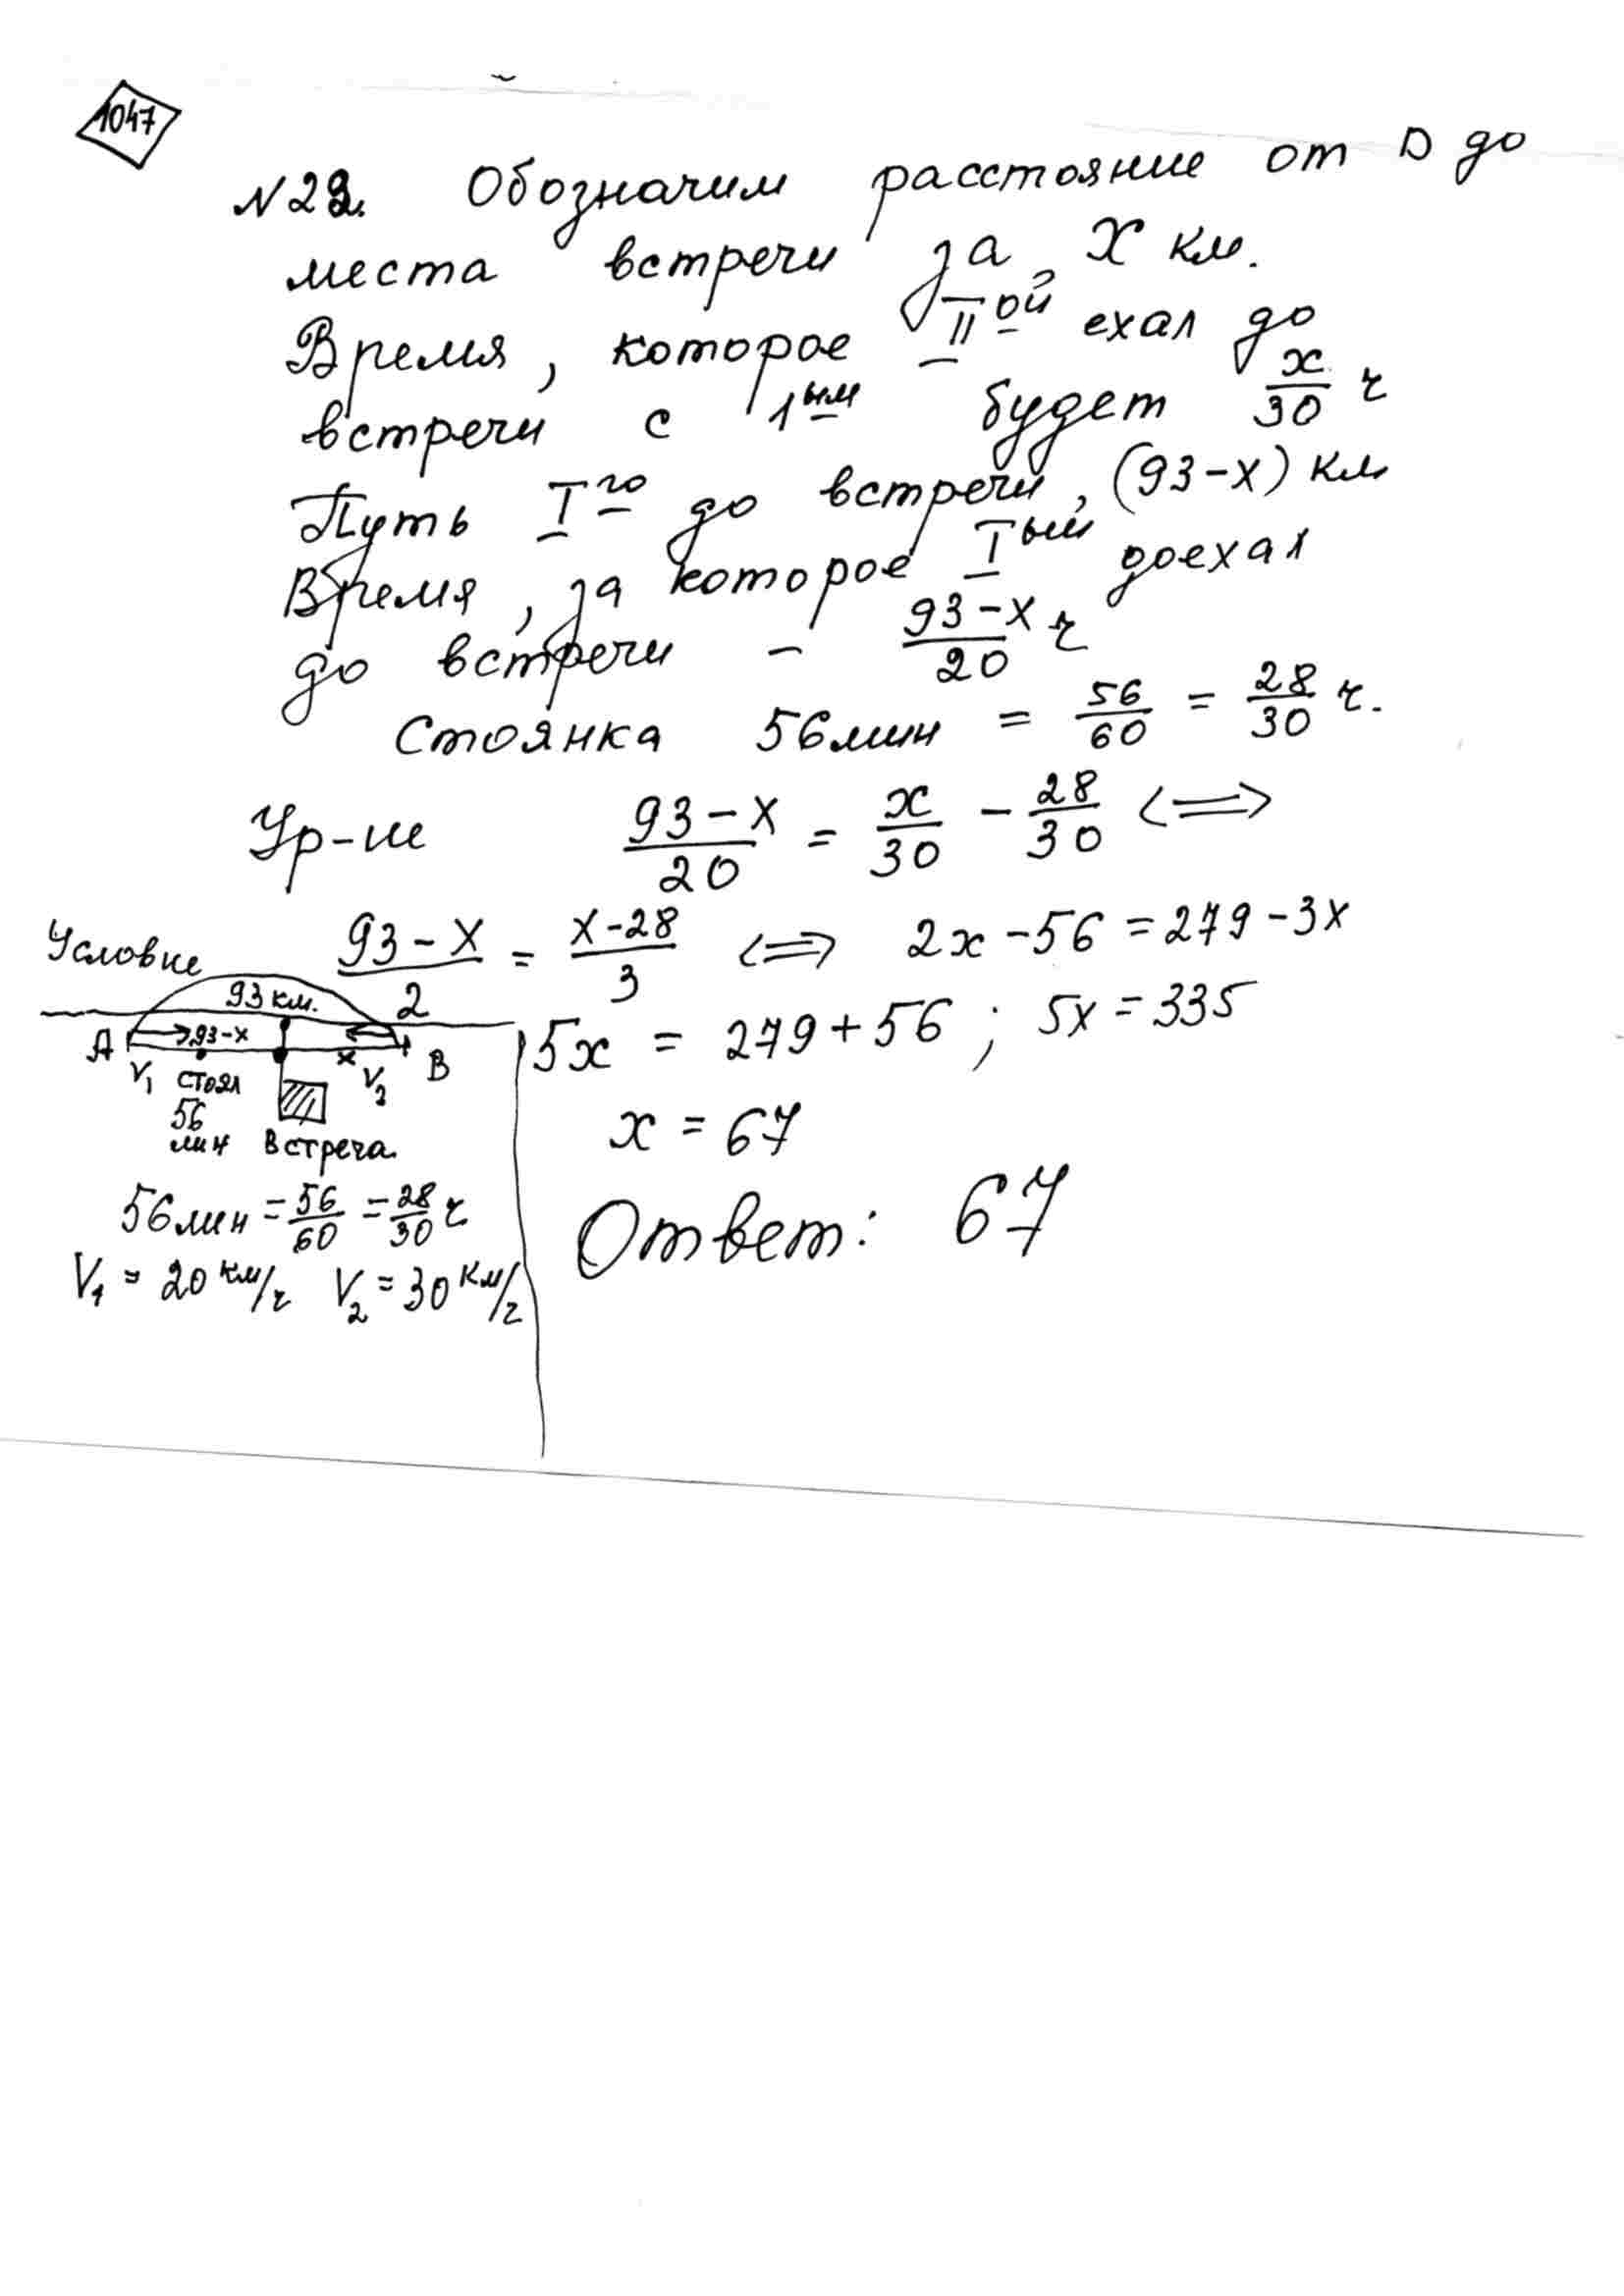 1047
№22. Обозначим расстояние от D до
места встречи за, X км.
Время, которое IIой ехал до
встречи с 1ым будет x/30 ч
Путь Iго до встречи, (93-x) км
Время, за которое Iый доехал
до встречи - 93-x/20 ч
Стоянка 56мин = 56/60 = 28/30 ч.
Ур-ие 93-x/20 = x/30 - 28/30 <=>
93-x/2 = x-28/3 <=> 2x-56=279-3x
5x = 279+56 ; 5x=335
x = 67
Ответ: 67
Условие
93 км.
A 93-x x B
V1 стоял V2
56
мин Встреча
56мин = 56/60 = 28/30 ч
V1 = 20 км/ч V2 = 30 км/ч